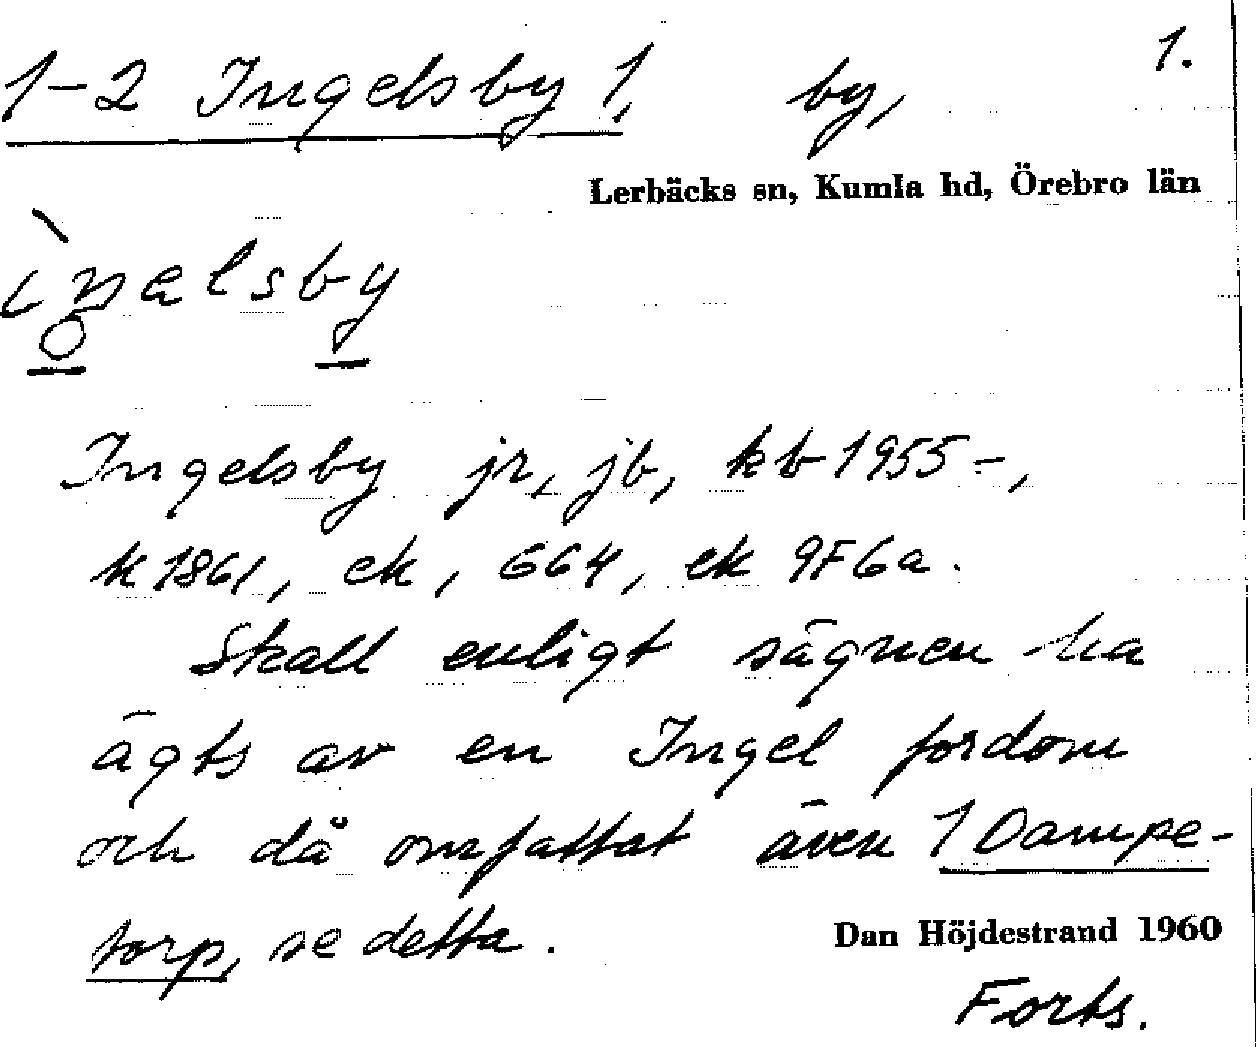 1.
1-2 Ingelsby 1, by,
Lerbäcks sn, Kumla hd, Örebro län
Ingelsby jr, jb, kb 1955-,
k 1861, ek, 664, ek 9F6a.
Skall enligt sägnen ha
ägts av en Ingel fordom
och då omfattat även 1 Dampe-
torp, se detta.
Dan Höjdestrand 1960
Forts.